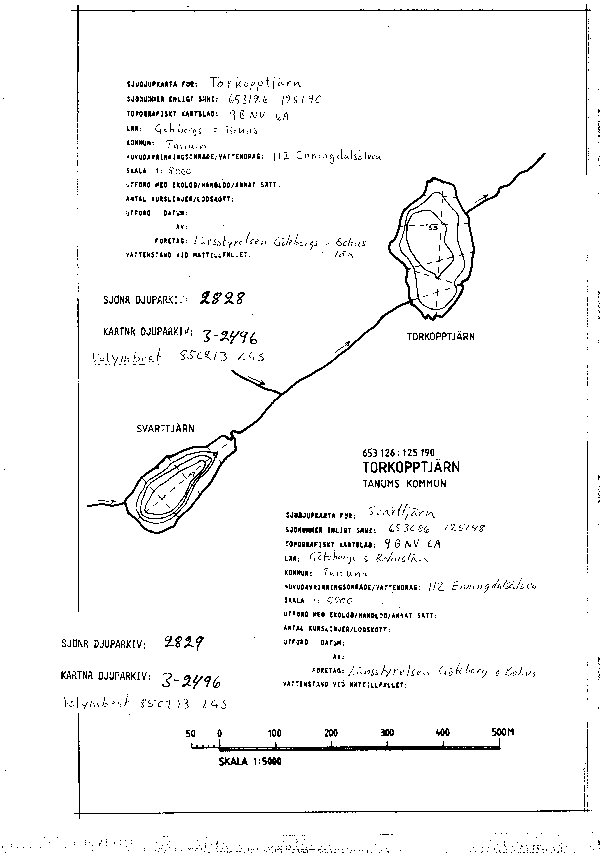 SJÖDJUPKARTA FÖR: Torkopptjärn
SJÖNUMMER ENLIGT SMHI: 653126 125190
TOPOGRAFISKT KARTBLAD: 9B NV 6A
LÄN: Göteborgs o Bohus
KOMMUN: Tanum
HUVUDAVRINNINGSOMRÅDE/VATTENDRAG: 112 Enningdalsälven
SKALA 1:5000
UTFÖRD MED EKOLOD/HANDLOD/ANNAT SÄTT:
ANTAL KURSLINJER/LODSKOTT:
UTFÖRD DATUM:
AV:
FÖRETAG: Länsstyrelsen Göteborgs o Bohus
län
VATTENSTÅND VID MÄTTILLFÄLLET:
SJÖNR DJUPARKIV: 2828
KARTNR DJUPARKIV: 3-2496
Volymber 850213 LGS
5.5
TORKOPPTJÄRN
SVARTTJÄRN
653 126 : 125 190
TORKOPPTJÄRN
TANUMS KOMMUN
SJÖDJUPKARTA FÖR: Svarttjärn
SJÖNUMMER ENLIGT SMHI: 653086 125148
TOPOGRAFISKT KARTBLAD: 9B NV 6A
LÄN: Göteborgs o Bohuslän
KOMMUN: Tanum
HUVUDAVRINNINGSOMRÅDE/VATTENDRAG: 112 Enningdalsälven
SKALA 1:5000
UTFÖRD MED EKOLOD/HANDLOD/ANNAT SÄTT:
ANTAL KURSLINJER/LODSKOTT:
UTFÖRD DATUM:
AV:
FÖRETAG: Länsstyrelsen Göteborg o Bohus
VATTENSTÅND VID MÄTTILLFÄLLET:
SJÖNR DJUPARKIV: 2829
KARTNR DJUPARKIV: 3-2496
Volymber 850213 LGS
50 0 100 200 300 400 500M
SKALA 1:5000